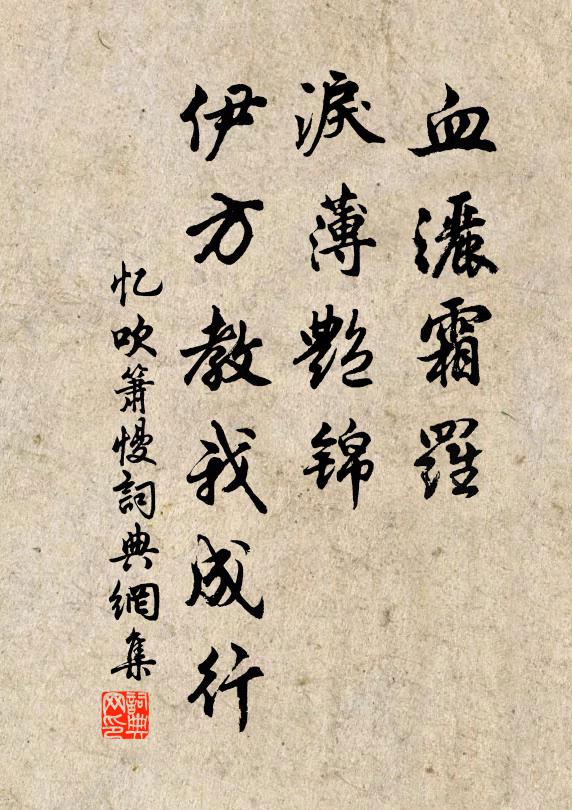 血灑霜羅
淚薄艷錦
伊方教我成行
忆吹簫慢詞典網集
詞典网印